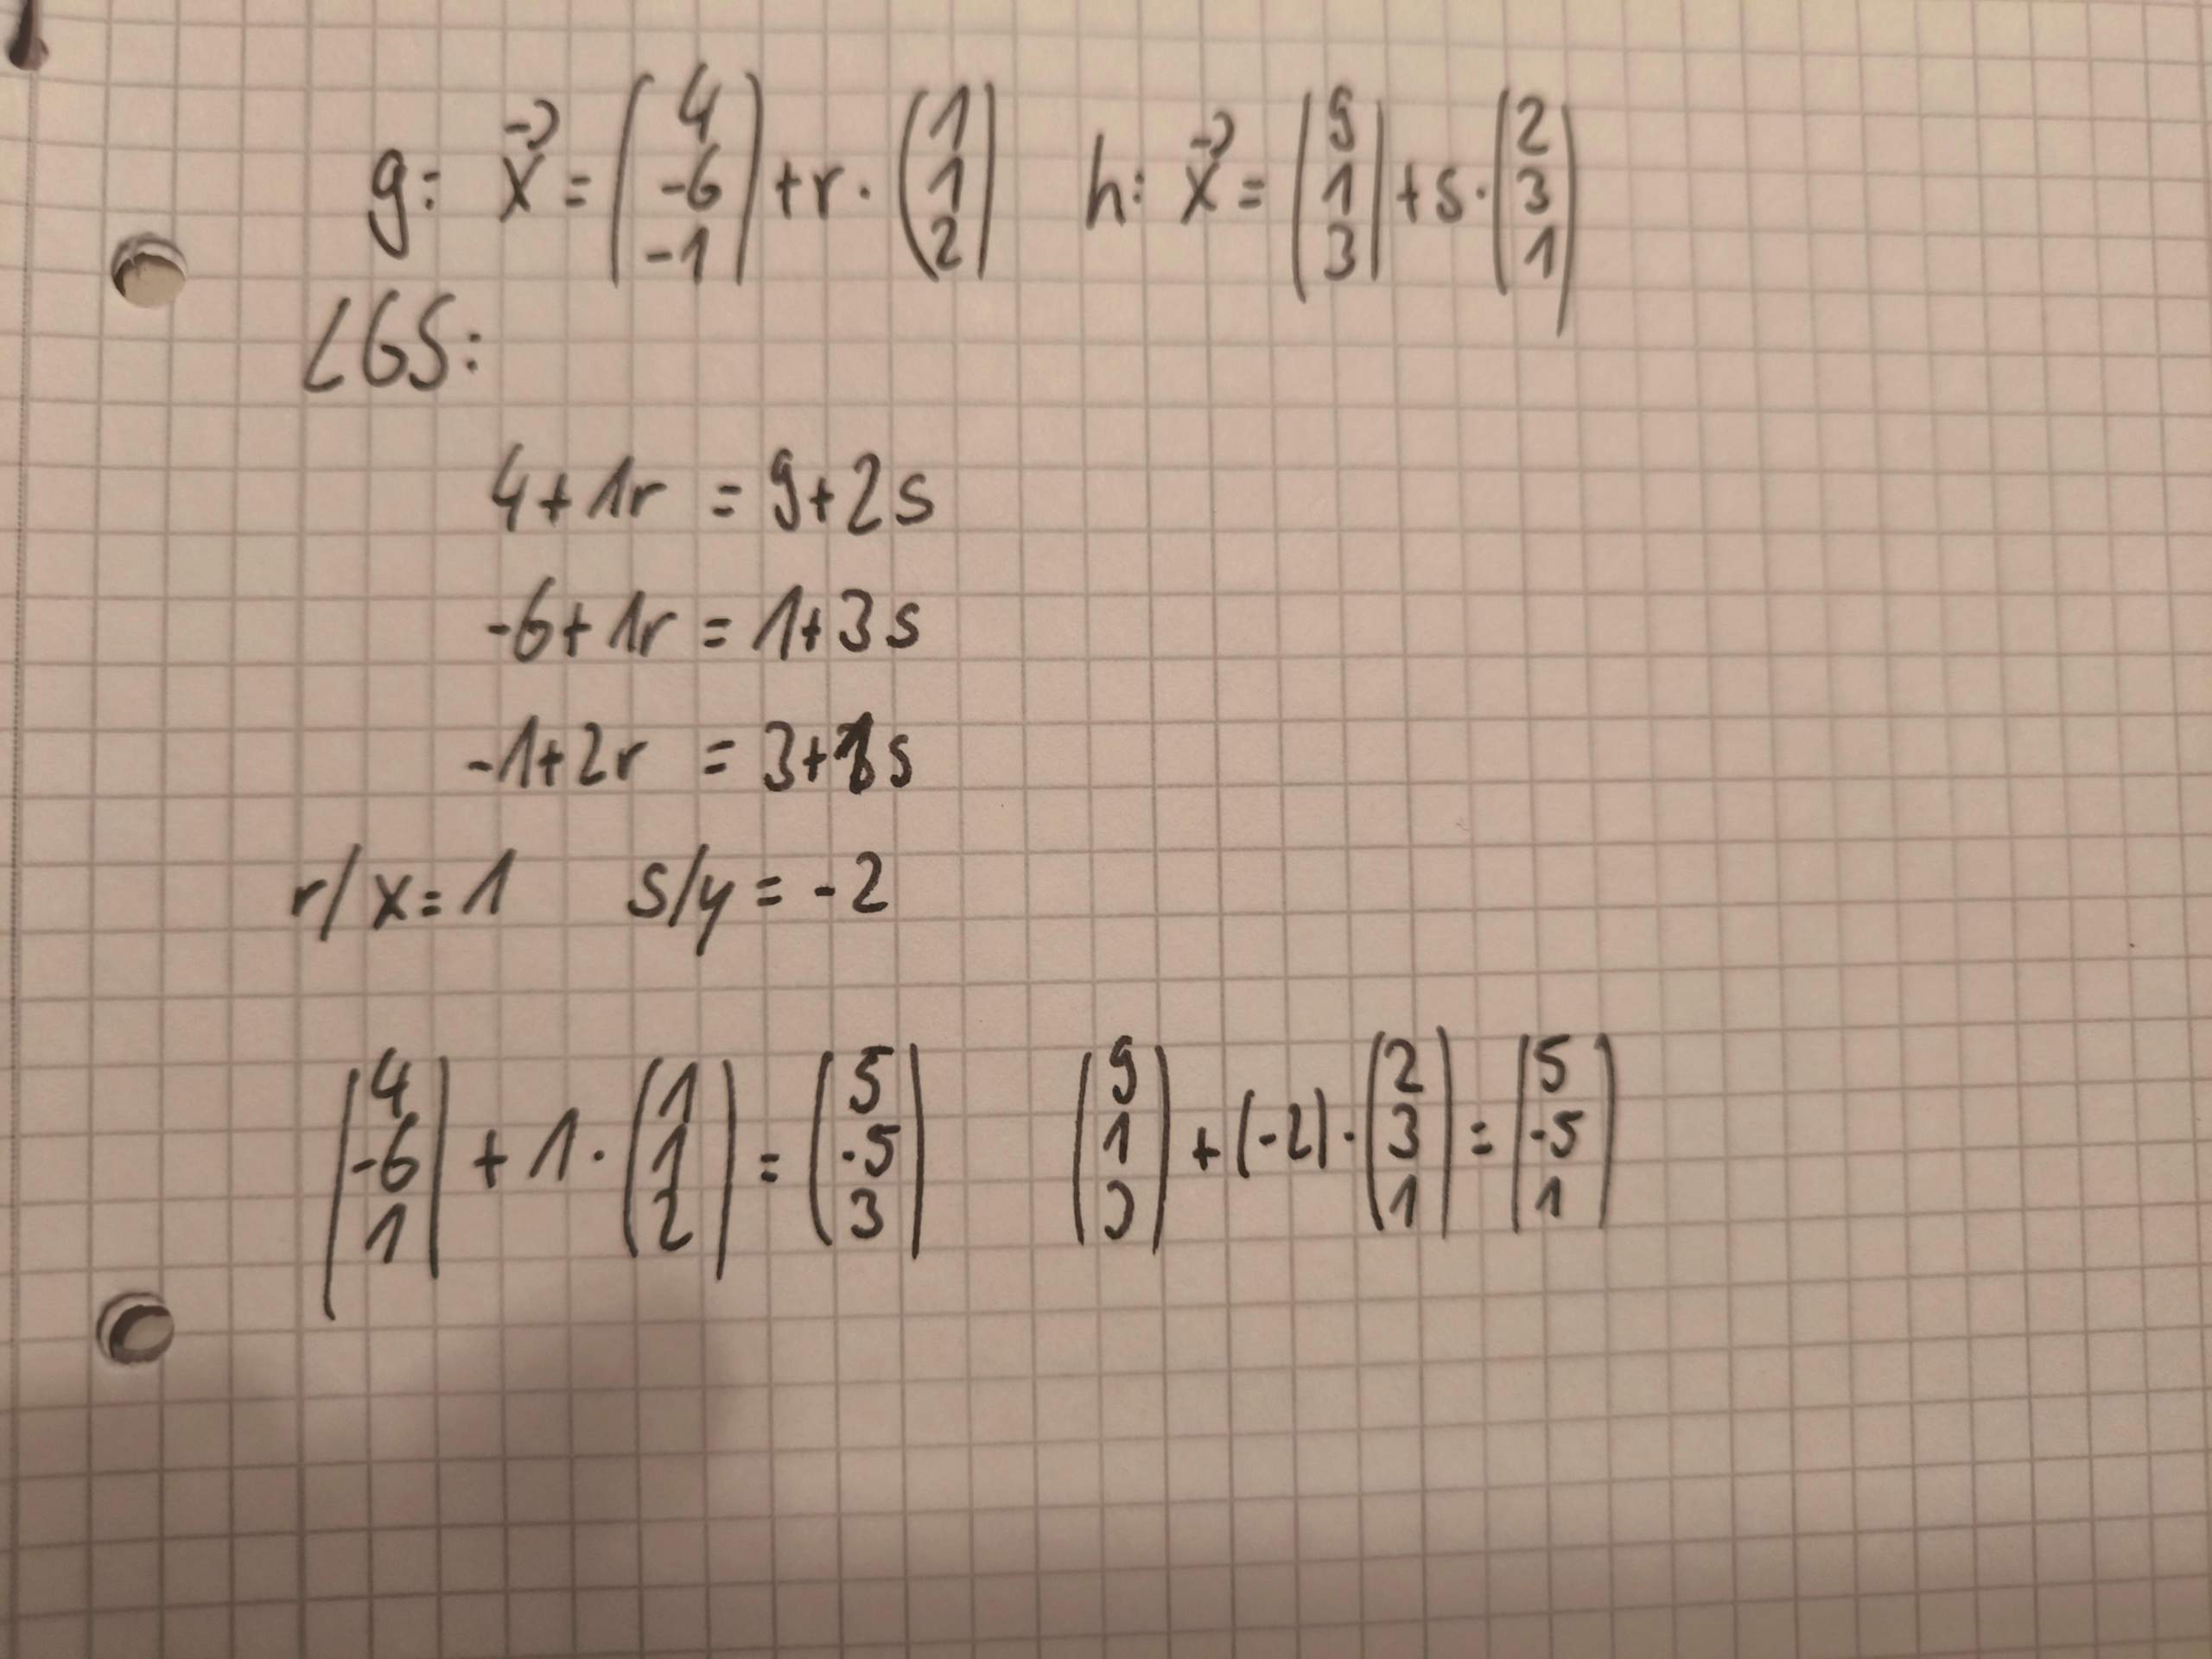 g: x⃗ = (4 -6 -1) + r · (1 1 2) h: x⃗ = (9 1 3) + s · (2 3 1)
LGS:
4 + 1r = 9 + 2s
-6 + 1r = 1 + 3s
-1 + 2r = 3 + 1s
r/x = 1 s/y = -2
(4 -6 1) + 1 · (1 1 2) = (5 -5 3) (9 1 3) + (-2) · (2 3 1) = (5 -5 1)